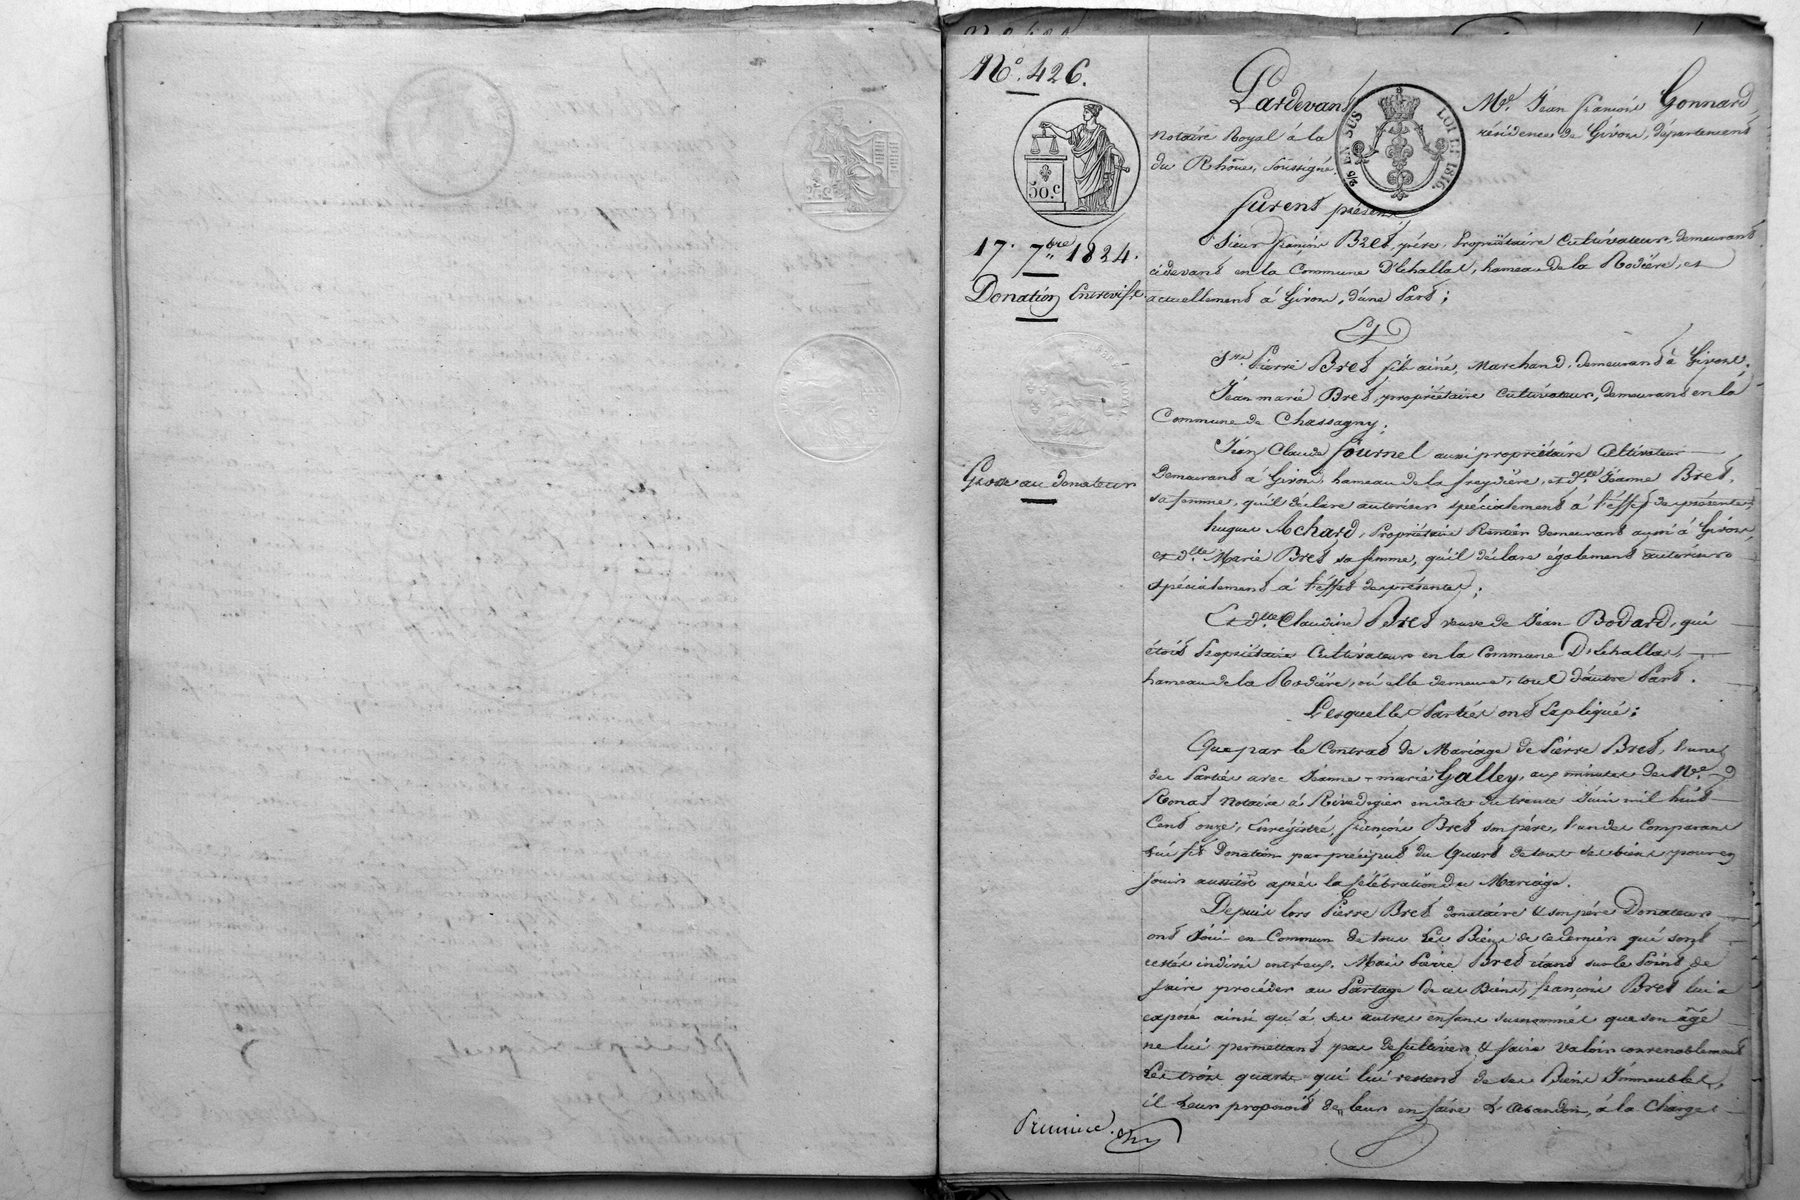 N.° 426.
50.c
17. 7.bre 1824.
Donation Entrevifs.
Grosse au donateur
Pardevant Me. Jean françois Gonnard,
EN SUS LOI DE 1816.
Notaire Royal à la résidence de Givors, département
du Rhône, soussigné.
furent présents
Sieur françois Bret, père, Propriétaire Cultivateur, demeurant
cidevant en la Commune D'Echallas, hameau de la Rodière, et
actuellement à Givors, d'une Part;
Et
Sr. Pierre Bret fils ainé, Marchand, demeurant à Givors.
Jean marie Bret, propriétaire Cultivateur, demeurant en la
Commune de Chassagny;
Jean Claude fournel aussi propriétaire Cultivateur
Demeurant à Givors, hameau de la freydière, et dlle. Jeanne Bret,
sa femme, qu'il déclare autoriser spécialement à l'effet des présentes;
hugues Achard, Propriétaire Rentier demeurant aussi à Givors,
et dlle. Marie Bret sa femme, qu'il déclare également autoriser
spécialement à l'effet des présentes;
Et dlle. Claudine Bret veuve de Jean Bodard, qui
étoit Propriétaire Cultivateur en la Commune D'Echallas,
hameau de la Rodière, où elle demeure, tous d'autre Part.
Lesquelles Parties ont Expliqué;
Que par le Contrat de Mariage de Pierre Bret, l'une
des Parties avec Jeanne-marie Galley, aux minutes de Me.
Ronat Notaire à Rivedegier en date du trente Juin mil huit
Cent onze, Enrégistré, françois Bret son père, l'un des Comparants
lui fit Donation par préciput du Quart de tous ses biens pour en
jouir aussitôt après la Célébration du Mariage.
Depuis lors Pierre Bret donataire & son père Donateur
ont Joui en Commun de tous Les Biens de ce dernier qui sont
restés indivis entr'eux. Mais Pierre Bret étant sur le Point de
faire procéder au Partage de ces Biens, françois Bret lui a
exposé ainsi qu'à ses autres enfans susnommés que son âge
ne lui permettant pas de Cultiver & faire valoir convenablement
Les trois quarts qui lui restent de ses Biens Immeubles,
il Leur proposoit de leur en faire L'abandon, à la Charge
Première.